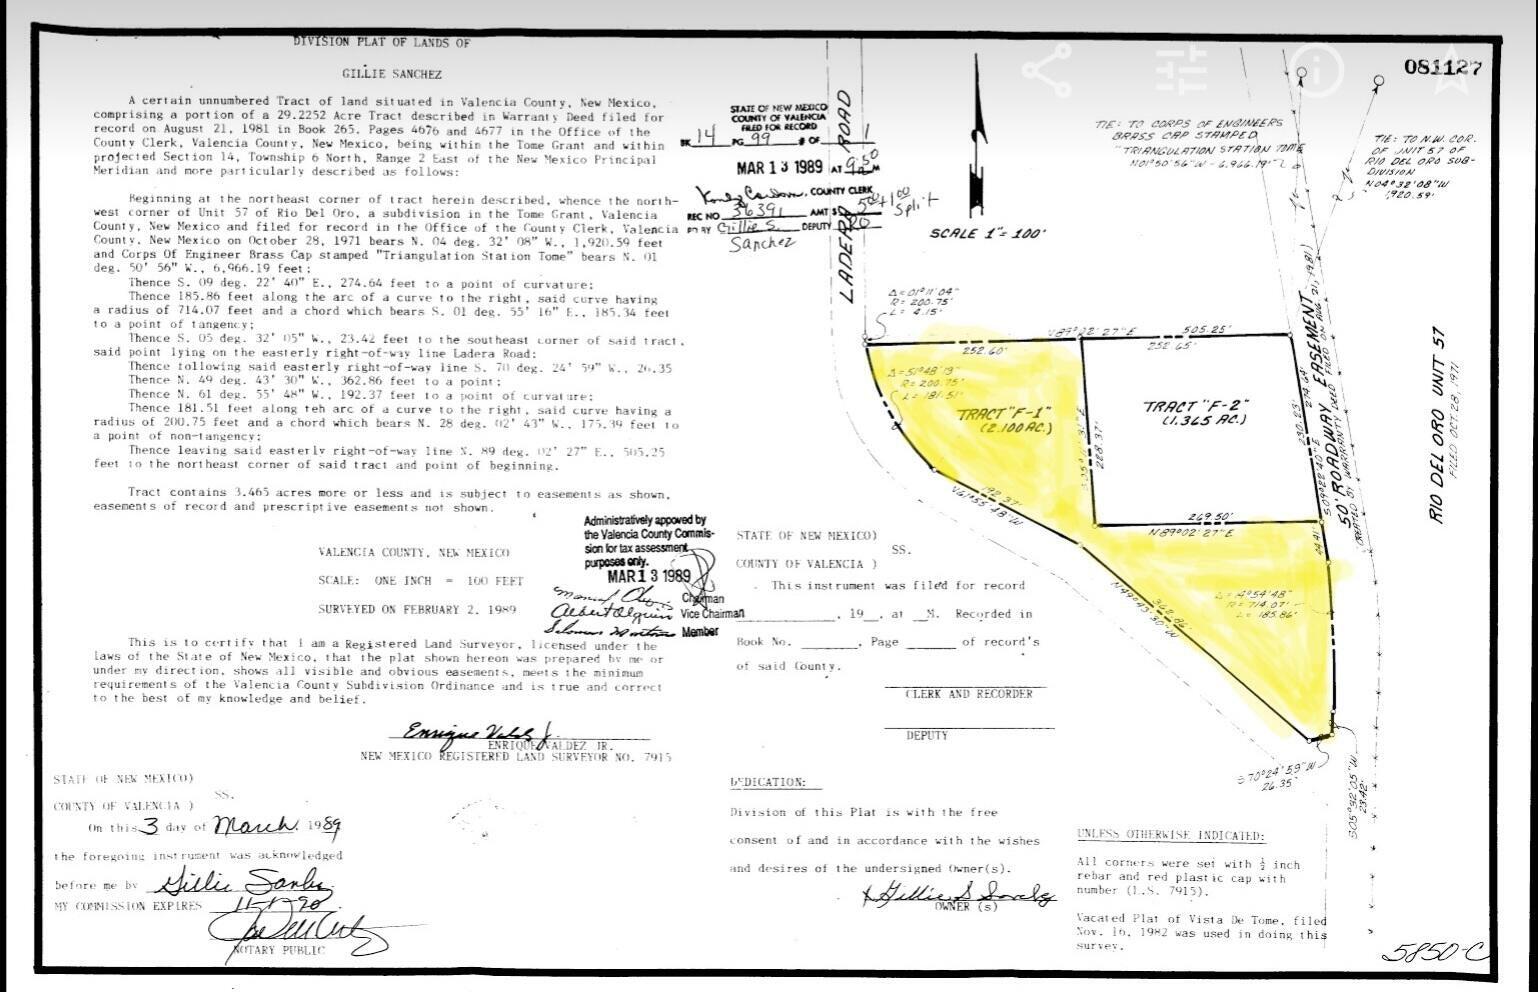 DIVISION PLAT OF LANDS OF
GILLIE SANCHEZ
A certain unnumbered Tract of land situated in Valencia County, New Mexico,
comprising a portion of a 29.2252 Acre Tract described in Warranty Deed filed for
record on August 21, 1981 in Book 265, Pages 4676 and 4677 in the Office of the
County Clerk, Valencia County, New Mexico, being within the Tome Grant and within
projected Section 14, Township 6 North, Range 2 East of the New Mexico Principal
Meridian and more particularly described as follows:
Beginning at the northeast corner of tract herein described, whence the north-
west corner of Unit 57 of Rio Del Oro, a subdivision in the Tome Grant, Valencia
County, New Mexico and filed for record in the Office of the County Clerk, Valencia
County, New Mexico on October 28, 1971 bears N. 04 deg. 32' 08" W., 1,920.59 feet
and Corps Of Engineer Brass Cap stamped "Triangulation Station Tome" bears N. 01
deg. 50' 56" W., 6,966.19 feet;
Thence S. 09 deg. 22' 40" E., 274.64 feet to a point of curvature;
Thence 185.86 feet along the arc of a curve to the right, said curve having
a radius of 714.07 feet and a chord which bears S. 01 deg. 55' 16" E., 185.34 feet
to a point of tangency;
Thence S. 05 deg. 32' 05" W., 23.42 feet to the southeast corner of said tract,
said point lying on the easterly right-of-way line Ladera Road;
Thence following said easterly right-of-way line S. 70 deg. 24' 59" W., 26.35
Thence N. 49 deg. 43' 30" W., 362.86 feet to a point;
Thence N. 61 deg. 55' 48" W., 192.37 feet to a point of curvature;
Thence 181.51 feet along teh arc of a curve to the right, said curve having a
radius of 200.75 feet and a chord which bears N. 28 deg. 02' 43" W., 175.39 feet to
a point of non-tangency;
Thence leaving said easterly right-of-way line N. 89 deg. 02' 27" E., 505.25
feet to the northeast corner of said tract and point of beginning.
Tract contains 3.465 acres more or less and is subject to easements as shown,
easements of record and prescriptive easements not shown.
VALENCIA COUNTY, NEW MEXICO
SCALE: ONE INCH = 100 FEET
SURVEYED ON FEBRUARY 2, 1989
Administratively appoved by
the Valencia County Commis-
sion for tax assessment
purposes only.
MAR 13 1989
Chairman
Vice Chairman
Member
This is to certify that I am a Registered Land Surveyor, licensed under the
laws of the State of New Mexico, that the plat shown hereon was prepared by me or
under my direction, shows all visible and obvious easements, meets the minimum
requirements of the Valencia County Subdivision Ordinance and is true and correct
to the best of my knowledge and belief.
Enrique Valdez Jr.
ENRIQUE VALDEZ JR.
NEW MEXICO REGISTERED LAND SURVEYOR NO. 7915
STATE OF NEW MEXICO)
SS.
COUNTY OF VALENCIA )
On this 3 day of March, 1989
the foregoing instrument was acknowledged
before me by Gillie Sanchez
MY COMMISSION EXPIRES 11-1-90
NOTARY PUBLIC
STATE OF NEW MEXICO
COUNTY OF VALENCIA
FILED FOR RECORD
BK 14 PG 99 # OF 1
MAR 13 1989 AT 9:50 M
COUNTY CLERK
REC NO 36391 AMT $ 5.00 +1.00
Split
BY Gillie S. DEPUTY
Sanchez
STATE OF NEW MEXICO)
SS.
COUNTY OF VALENCIA )
This instrument was filed for record
, 19 , at M. Recorded in
Book No. , Page of record's
of said County.
CLERK AND RECORDER
DEPUTY
DEDICATION:
Division of this Plat is with the free
consent of and in accordance with the wishes
and desires of the undersigned Owner(s).
X Gillie S Sanchez
OWNER (s)
081127
LADERA ROAD
SCALE 1"= 100'
TIE: TO CORPS OF ENGINEERS
BRASS CAP STAMPED
"TRIANGULATION STATION TOME
N01°50'56"W - 6,966.19'
TIE: TO N.W. COR.
OF UNIT 57 OF
RIO DEL ORO SUB-
DIVISION
N04°32'08"W
1920.59'
Δ=01°11'04"
R=200.75'
L= 4.15'
N89°02'27"E 505.25'
252.60'
252.65'
Δ=51°48'19"
R=200.75'
L=181.51'
TRACT "F-1"
(2.100 AC.)
S05°11'31"E
228.37'
TRACT "F-2"
(1.365 AC.)
230.23'
274.64'
S09°22'40"E
50' ROADWAY EASEMENT
CREATED BY WARRANTY DEED FILED ON AUG. 21, 1981)
RIO DEL ORO UNIT 57
FILED OCT. 28, 1971
192.37'
N61°55'48"W
269.50'
N89°02'27"E
44.41'
362.86'
N49°43'30"W
Δ=14°54'48"
R=714.07'
L=185.86'
S70°24'59"W
26.35'
S05°32'05"W
23.42'
UNLESS OTHERWISE INDICATED:
All corners were set with ½ inch
rebar and red plastic cap with
number (L.S. 7915).
Vacated Plat of Vista De Tome, filed
Nov. 16, 1982 was used in doing this
survey.
5850-C